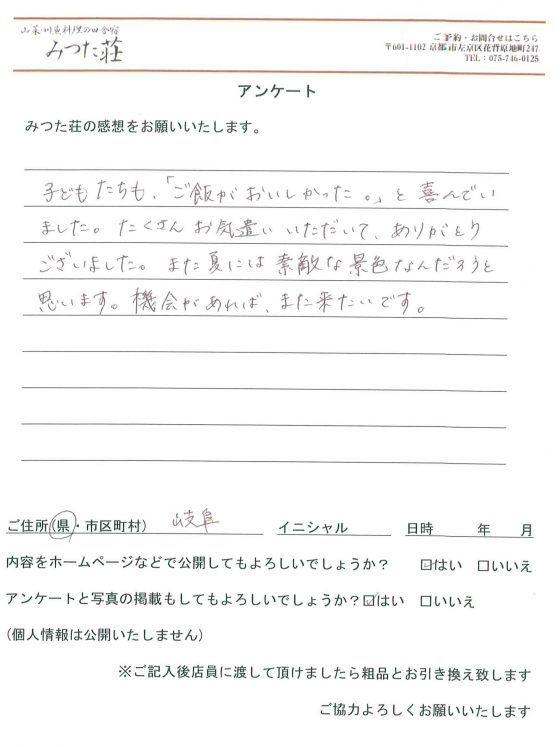 山菜・川魚料理の田舎宿
みつた荘
ご予約・お問合せはこちら
〒601-1102 京都市左京区花背原地町247
TEL：075-746-0125
アンケート
みつた荘の感想をお願いいたします。
子どもたちも、「ご飯がおいしかった。」と喜んでい
ました。たくさんお気遣いいただいて、ありがとう
ございました。また夏には素敵な景色なんだろうと
思います。機会があれば、また来たいです。
ご住所（県・市区町村） 岐阜 イニシャル 日時 年 月
内容をホームページなどで公開してもよろしいでしょうか？ ☑はい □いいえ
アンケートと写真の掲載もしてもよろしいでしょうか？☑はい □いいえ
（個人情報は公開いたしません）
※ご記入後店員に渡して頂けましたら粗品とお引き換え致します
ご協力よろしくお願いいたします